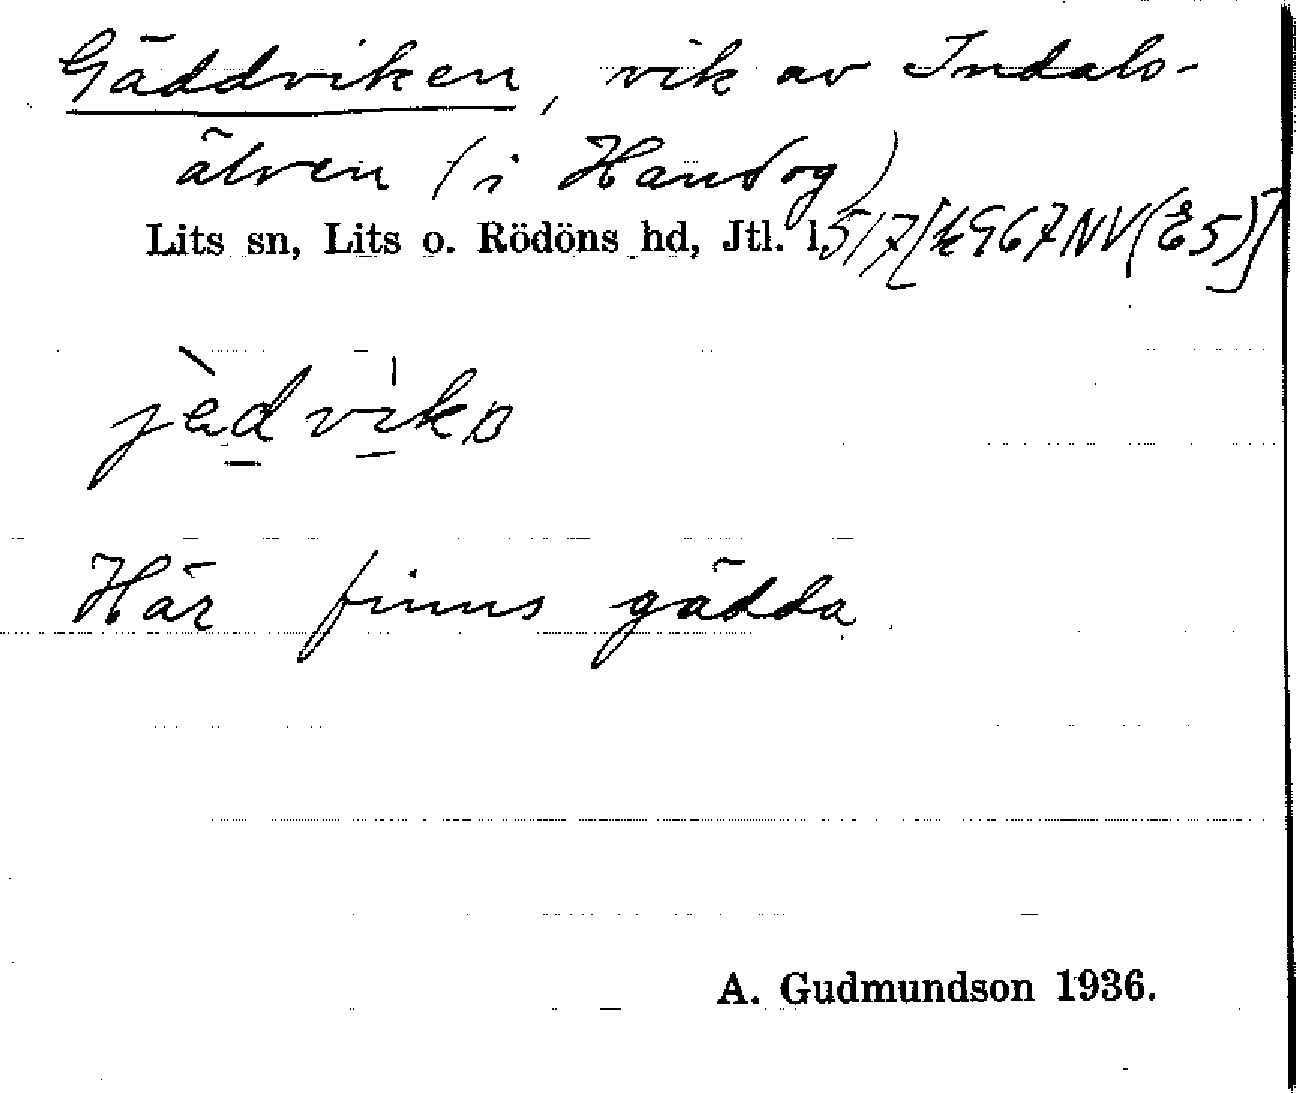 Gäddviken, vik av Indals-
älven (i Handog)
Lits sn, Lits o. Rödöns hd, Jtl. l.
Här finns gädda
A. Gudmundson 1936.